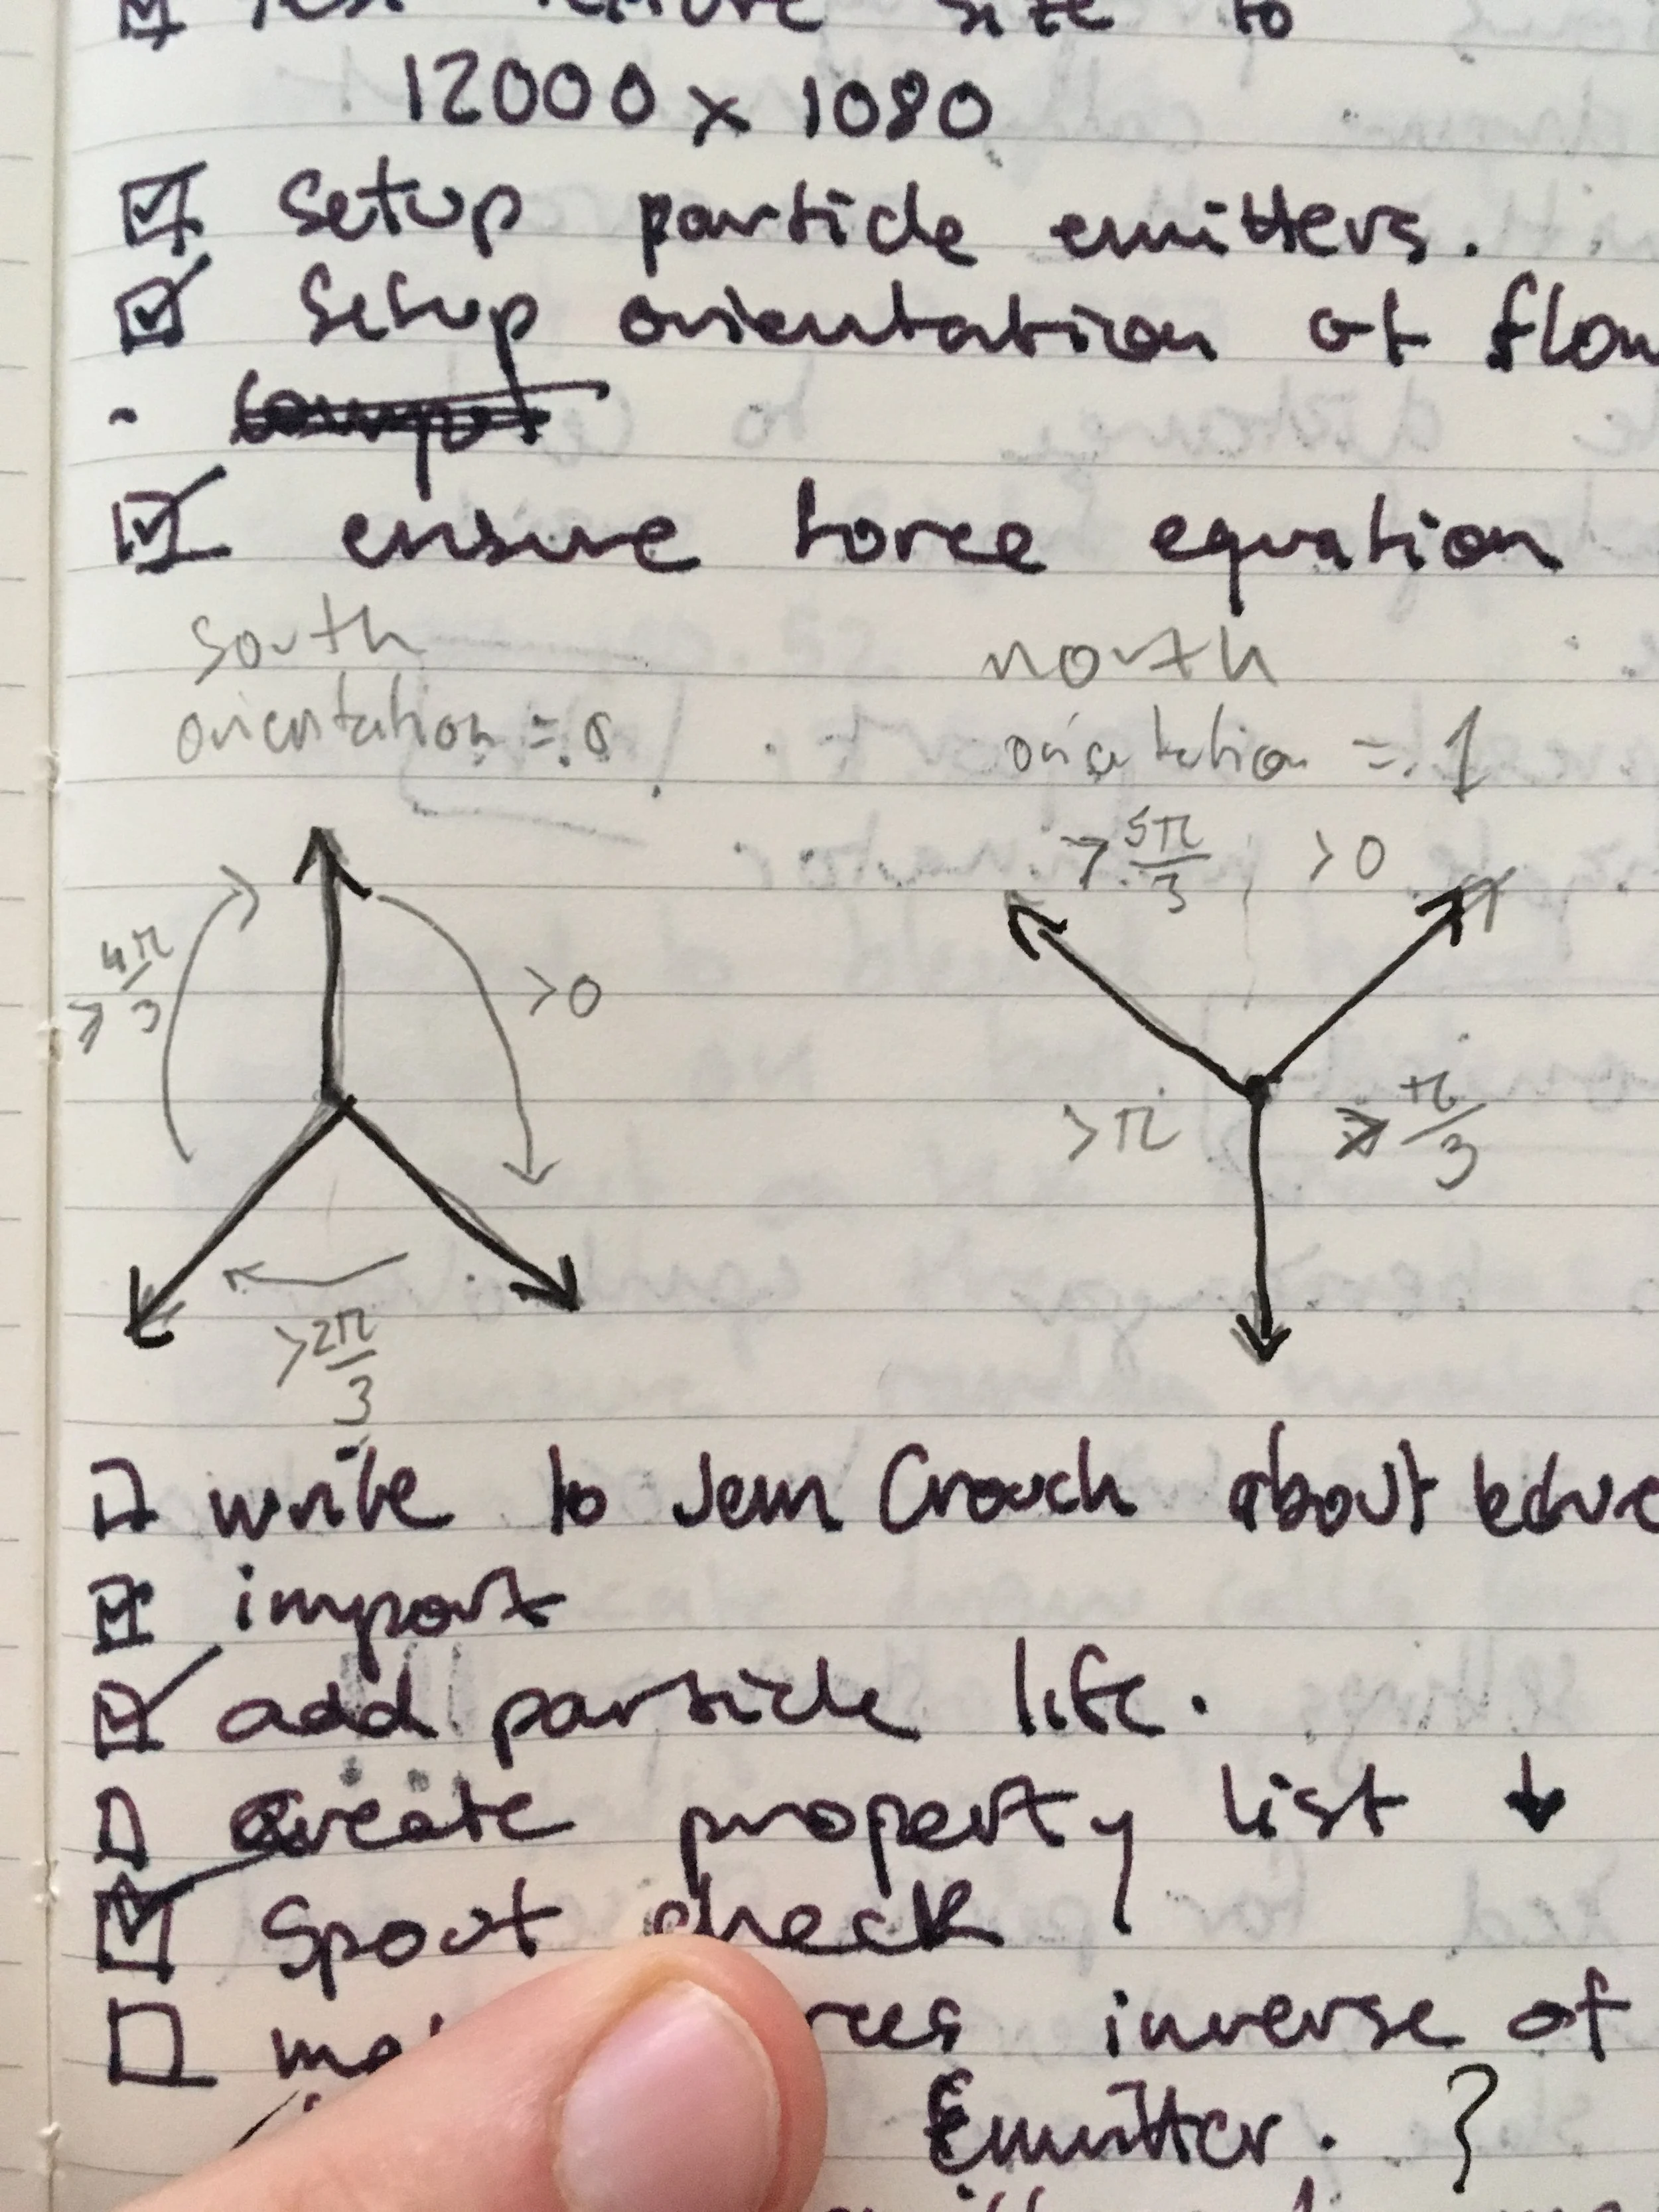 size to
12000 x 1080
setup particle emitters.
setup orientation of flow
ensure force equation
south
orientation = 0
north
orientation = 1
> 5π/3 >0
≥ 4π/3
>0
>π
> π/3
> 2π/3
write to Jem Crouch about
import
add particle life.
create property list ↓
Spout check
inverse of
Emitter. ?